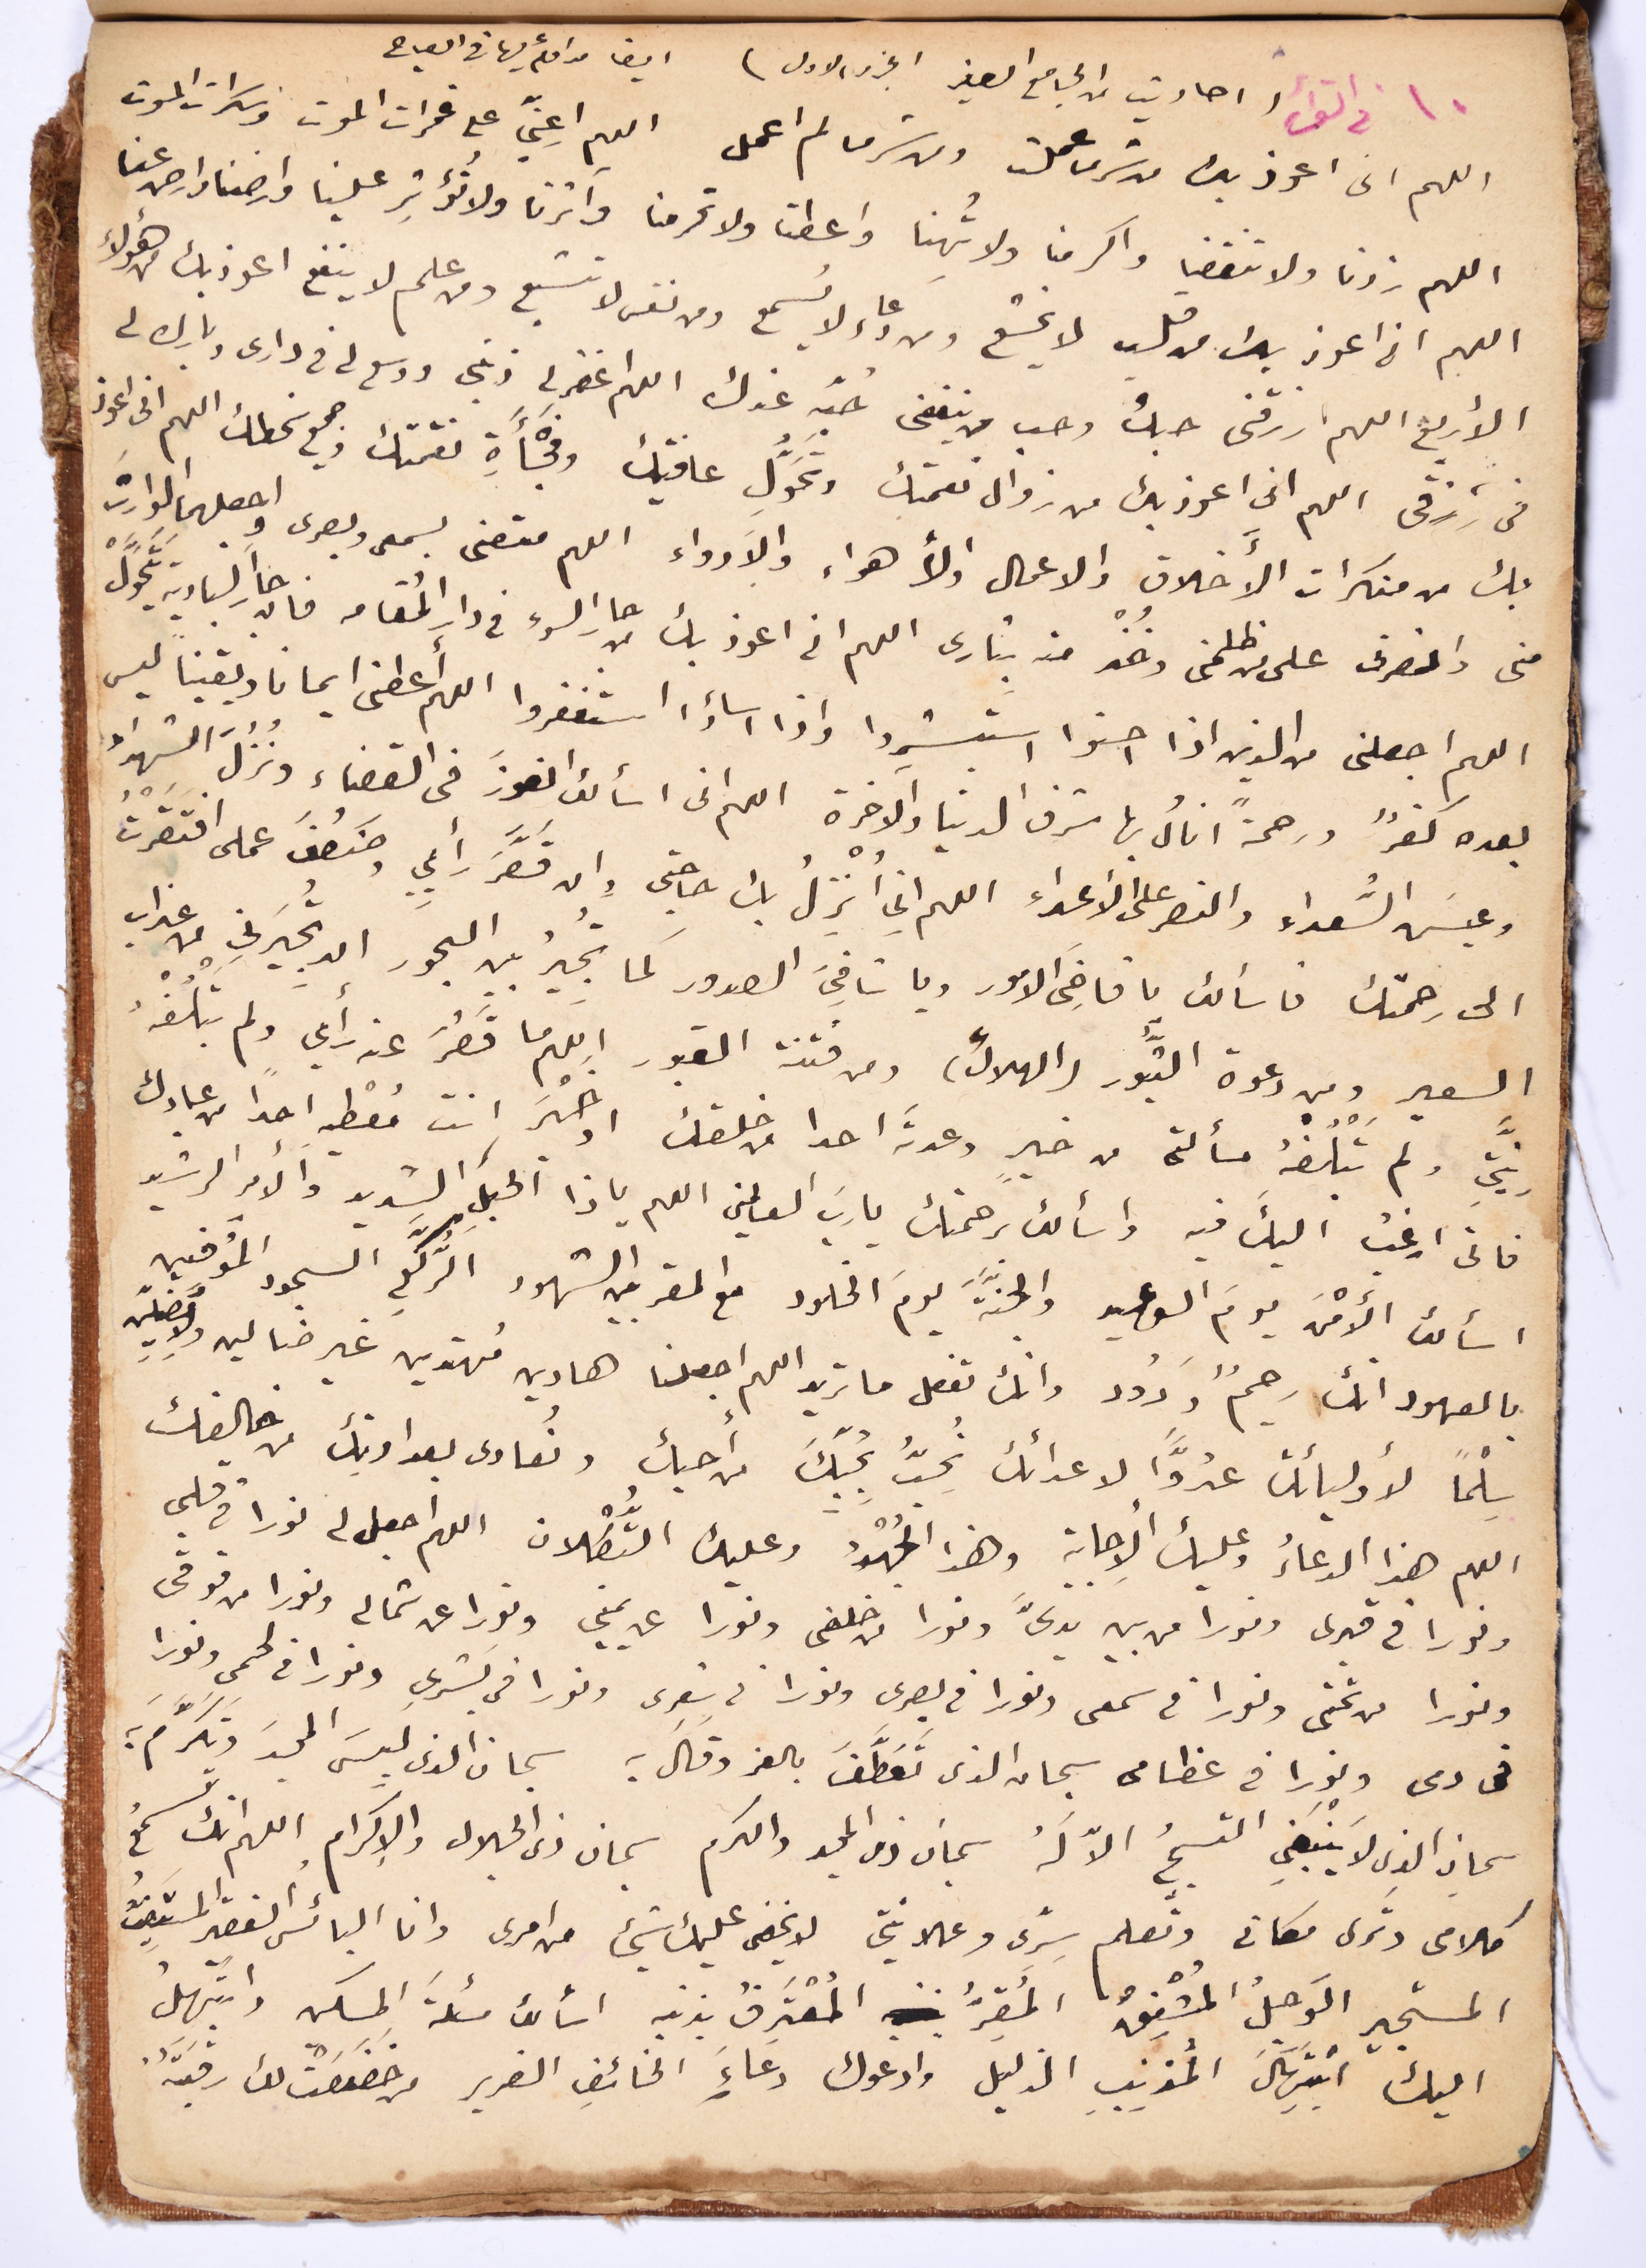 ١٠ في القرآن ) احاديث من الجامع الصغير الجزء الاول ) ايضا
اللهم انى اعوذ بك من شر ما عملت ومن شر ما لم اعمل اللهم اعِنّي على غمرات الموت وسكرات الموت
اللهم زدنا ولا تنقصنا واكرمنا ولا تُهنا واعطنا ولا تحرمنا وآثرنا ولا تُؤثِر علينا وارضنا وارض عنا
اللهم انى اعوذ بك من قلب لا يخشع ومن دعاء لا يُسمع ومن نفس لا تشبع ومن علم لا ينفع اعوذ بك من هؤلاء
الأربع اللهم ارزقنى حبك وحب من ينفعنى حُبّه عندك اللهم اغفر لى ذنبى ووسع لى فى دارى وبارك لى
فى رِزقى اللهم انى اعوذ بك من زوال نعمتك وتَحَوُّلِ عافيتك وفُجَأَةِ نقمتك وجميع سخطك اللهم انى اعوذ
بك من منكرات الأَخلاق والاعمال والأهواء والادواء اللهم متعنى بسمعى وبصرى واجعلهما الوارث
منى وانصرنى على من ظلمنى وخُذْ منه بثارى اللهم انى اعوذ بك من جار السوء فى دار المُقامه فان جارَ البادية يَتَحَوَّلُ
اللهم اجعلنى من الذين اذا احسنوا استبشروا واذا اساؤا استغفروا اللهم أعطنى ايمانا ويقيناً ليس
بعده كفرٌ ورحمةً انالُ بها شرف الدنيا والآخرة اللهم انى اسألك الفوزَ فى القضاء ونُزُلَ الشهداء
وعيشَ السُّعداء والنصر على الاعداء اللهم انى اُنْزِلُ بك حاجتى وان قَصَّرَ رأيي وضَعُفَ عملى افتَقَرْتُ
الى رحمتك فاسألك يا قاضِىَ الامور ويا شافِىَ الصدور كما تُجيرُ بين البحور ان تُجيرَنِي من عذاب
السعير ومن دعوة الثُّبُور (الهلاك) ومن فتنة القبور اللهم ما قَصُرَ عنه رأيى ولم تَبْلُغْهُ
نيَّتِي ولم تَبْلُغْهُ مسألتى من خيرٍ وعدتَه احدا من خلقك او خَيْرٍ انت مُعْطيه احدًا من عبادك
فانى ارغبُ اليكَ فيه واسألك برحمتك يا ربَ العالمين اللهم ياذا الحبلِ الشديد والأمر الرشيد
اسألك الأَمْنَ يومَ الوعيد والجنَّةَ يومَ الخلود مع المقربين الشهود الرُّكَّعِ السجود المُوفين
بالعهود انك رحيمٌ وَدُود وانك تفعل ما تريد اللهم اجعلنا هادين مُهتدين غير ضالين ولا مُضِلّين
سِلْمًا لأوليائك عدُوًّا لاعدائك نُحِبُّ بحُبِّكَ من أحبك ونُعادى بعداوتك من خالفك
اللهم هذا الدعاءُ وعليك الاِجابة وهذا الجُهْدُ وعليك التُّكْلان اللهم اجعل لى نورا فى قلبى
ونورا فى قبرى ونورا من بين يدىَّ ونورا من خلفى ونورا عن يمينى ونورا عن شمالى ونورا من فوقى
ونورا من تحتى ونورا فى سمعى ونورا فى بصرى ونورا فى شعرى ونورا فى بشرى ونورا فى لحمى ونورا
فى دمى ونورا فى عظامى سبحان الذى تَعَطَّفَ بالعز وقالَ به سبحان الذى لَبِسَ المجدَ وتَكَرَّمَ به
سبحان الذى لا يَنْبَغِى التسبيحُ الاّ لَهُ سبحان ذى المجد والكرم سبحان ذى الجلال والاِكرام اللهم انك تسمعُ
كلامى وترى مكانى وتعلم سِرّى وعلانيتى لا يخفى عليك شيئٌ من امرى وانا البائس الفقير المُستَغيثُ
المستجير الوَجِلُ المُشْفِقُ المُقِرُّ المُعْتَرِفُ بذنبه اسألك مسئلةَ المسكين وابتَهِلُ
اليك ابْتِهَالَ المُذنِبِ الذليل وادعوك دعَاءَ الخائفِ الضرير من خَضَعَتْ لك رَقَبَتُهُ